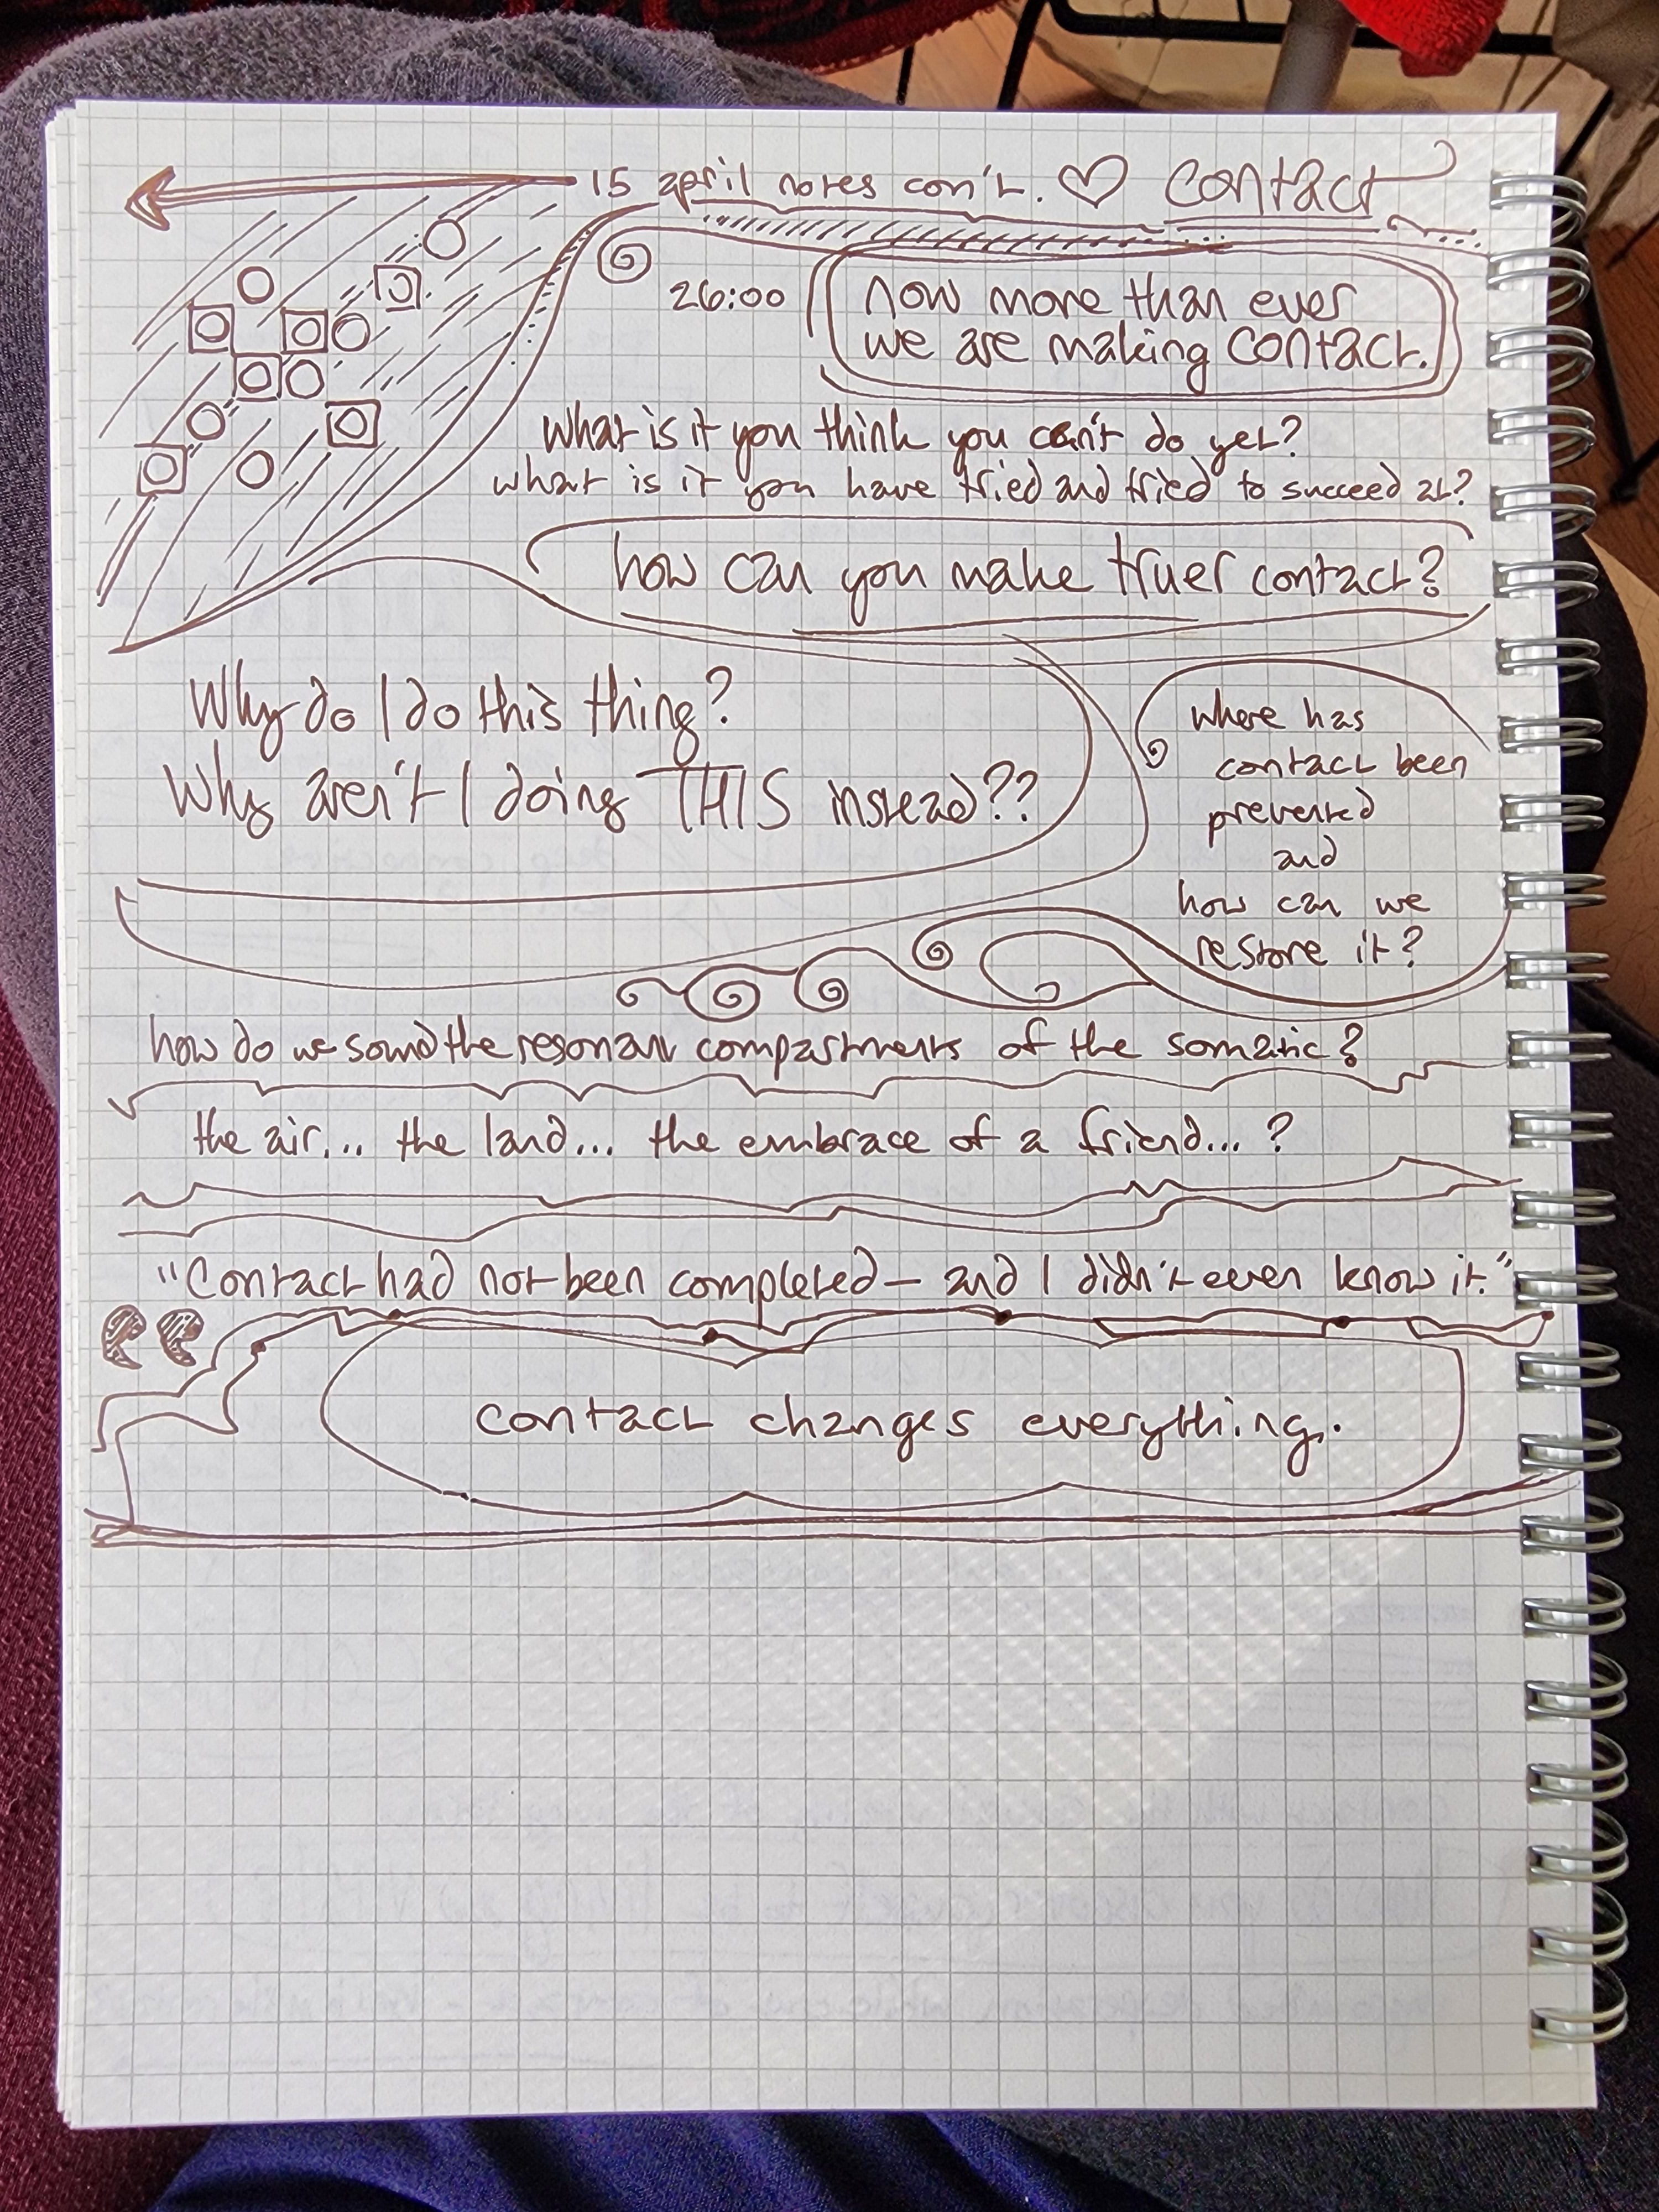 15 april notes con't. ♡ contact
26:00
now more than ever
we are making contact.
What is it you think you can't do yet?
what is it you have tried and tried to succeed at?
how can you make truer contact?
Why do I do this thing?
Why aren't I doing THIS instead??
where has
contact been
prevented
and
how can we
restore it?
how do we sound the resonant compartments of the somatic?
the air... the land... the embrace of a friend...?
"Contact had not been completed — and I didn't even know it."
contact changes everything.